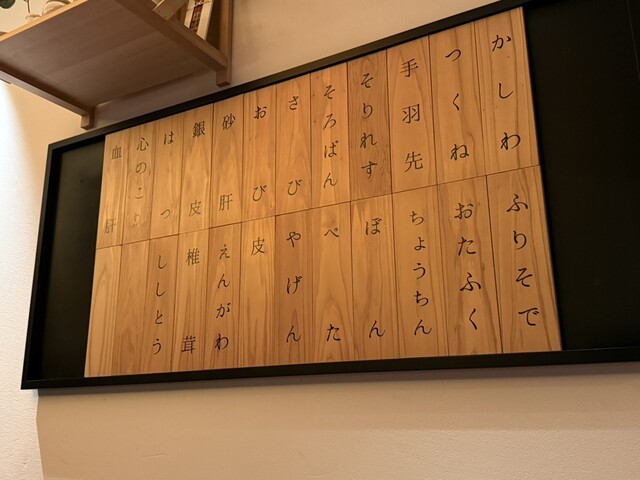 かしわ
つくね
手羽先
そりれす
そろばん
さび
おび
砂肝
銀皮
はつ
心のこり
血肝
ふりそで
おたふく
ちょうちん
ぼん
ぺた
やげん
皮
えんがわ
椎茸
ししとう